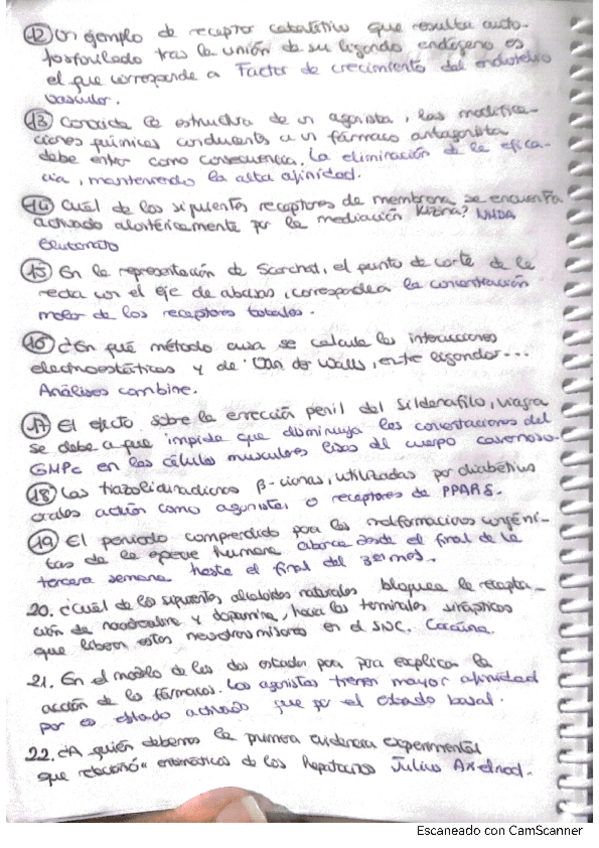 12 Un ejemplo de receptor catalítico que resulta auto-
fosforilado tras la unión de su ligando endógeno es
el que corresponde a Factor de crecimiento del endotelio
vascular.
13 Conocida la estructura de un agonista, las modifica-
ciones químicas conducentes a un fármaco antagonista
debe entrar como consecuencia. La eliminación de la efica-
cia, manteniendo la alta afinidad.
14 Cuál de los siguientes receptores de membrana se encuentra
activado alostéricamente por la mediación NMDA
Glutamato
15 En la representación de Scarchat, el punto de corte de la
recta con el eje de abcisas, corresponde a la concentración
molar de los receptores totales.
16 ¿En qué método se calcula las interacciones
electroestáticas y de Van der Walls, entre ligandos...
Análisis combine.
17 El efecto sobre la erección penil del Sildenafilo, viagra
se debe a que impide que disminuya las concentraciones del
GMPc en las células musculares lisas del cuerpo cavernoso.
18 Las β-cionas, utilizadas por diabéticos
orales actúan como agonistas o receptores de PPARS.
19 El periodo comprendido para las malformaciones congéni-
tas de la época humana abarca desde el final de la
tercera semana hasta el final del 3er mes.
20. ¿Cuál de los siguientes alcaloides naturales bloquea la recapta-
ción de noradrenalina y dopamina, hacia las terminales sinápticas
que liberan estos neurotransmisores en el SNC. Cocaína.
21. En el modelo de los dos estados para explicar la
acción de los fármacos. Los agonistas tienen mayor afinidad
por es estado activado que por el estado basal.
22. ¿A quién debemos la primera evidencia experimental
que enzimáticos de los hepatocitos Julius Axelrod.
Escaneado con CamScanner